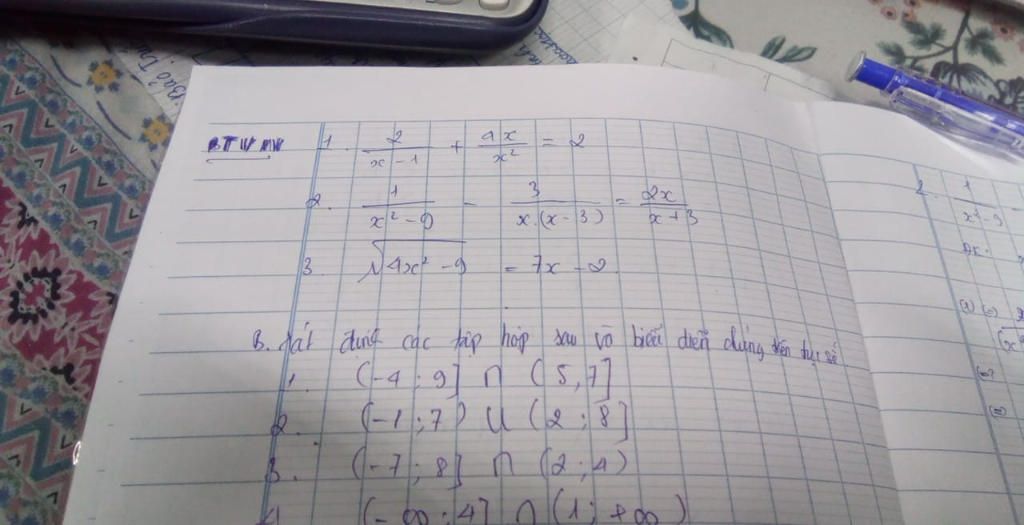 BTVN 1. 2/(x-1) + 4x/x² = 2
2. 1/(x²-9) - 3/(x.(x-3)) = 2x/(x+3)
3. √(4x²-9) = 7x - 2
B. các tập hợp sau và biểu diễn chúng trên trục số
1. (-4 ; 9] ∩ (5, 7]
2. (-1 ; 7) ∪ (2 ; 8]
3. (-7 ; 8] ∩ (2 ; 4)
4. (-∞ ; 4] ∩ (1 ; +∞)
2. 1/(x²-9) -
ĐK: